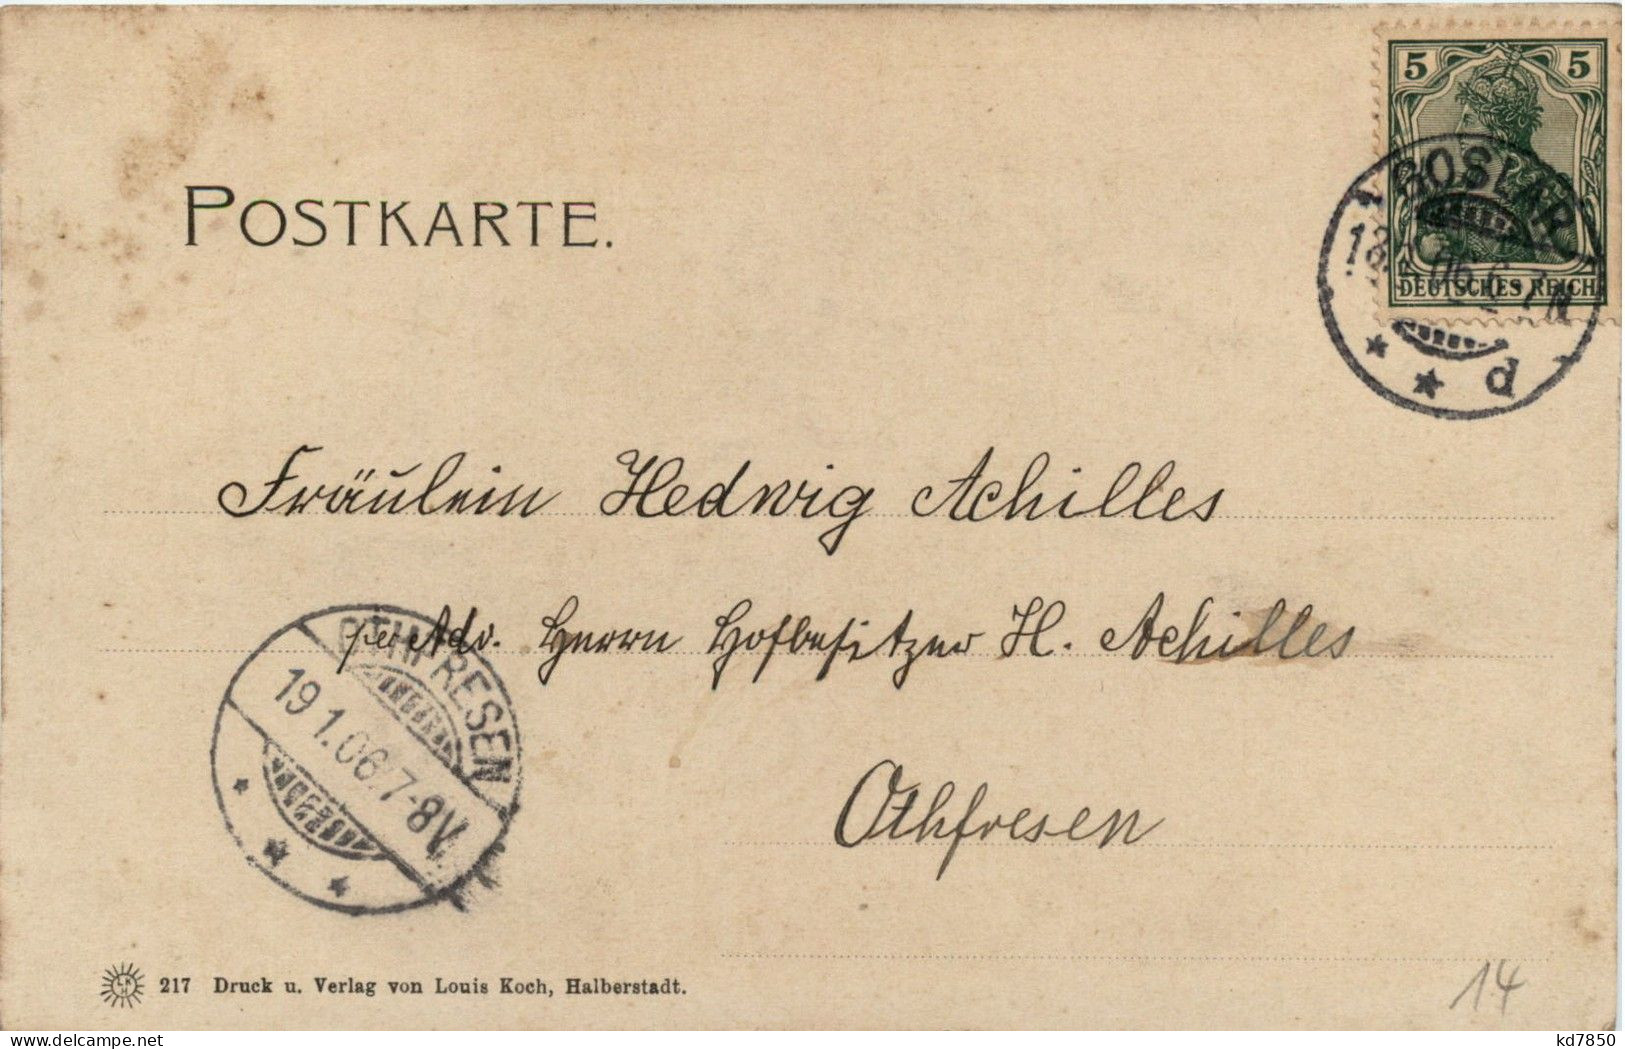 POSTKARTE.
5 5
DEUTSCHES REICH
GOSLAR
18. 1. 06. 6-7 N
d
Fräulein Hedwig Achilles
per Adr. Herrn Hofbesitzer H. Achilles
Othfresen
OTHFRESEN
19 1.06.7-8V.
217 Druck u. Verlag von Louis Koch, Halberstadt.
14
www.delcampe.net
kd7850